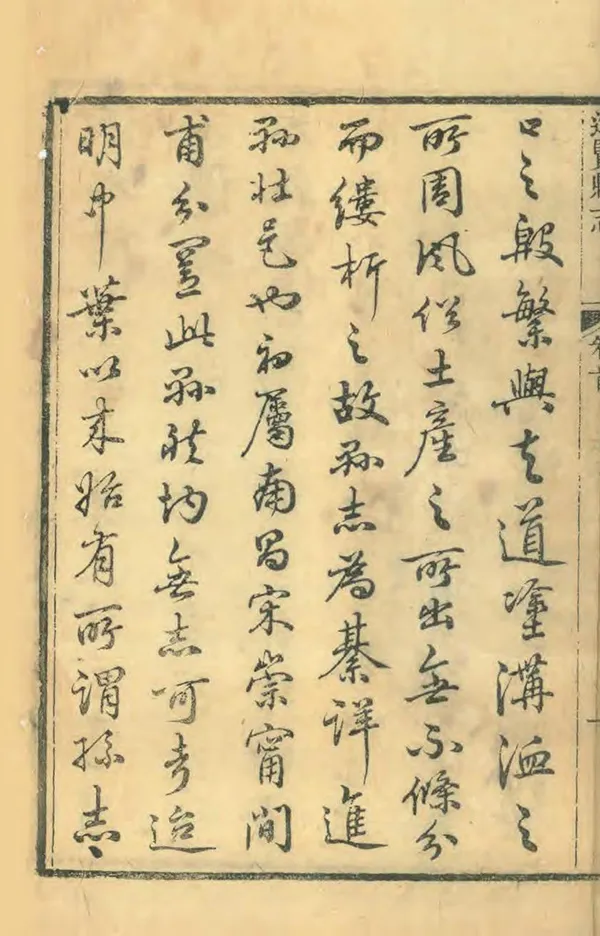 進賢縣志 卷首
口之殷繁與夫道塗溝洫之
所周風俗土產之所出無不條分
而縷析之故縣志為綦詳進
縣壯邑也初屬南昌宋崇甯間
甫分置此縣然均無志可考迨
明中葉以來始有所謂孫志